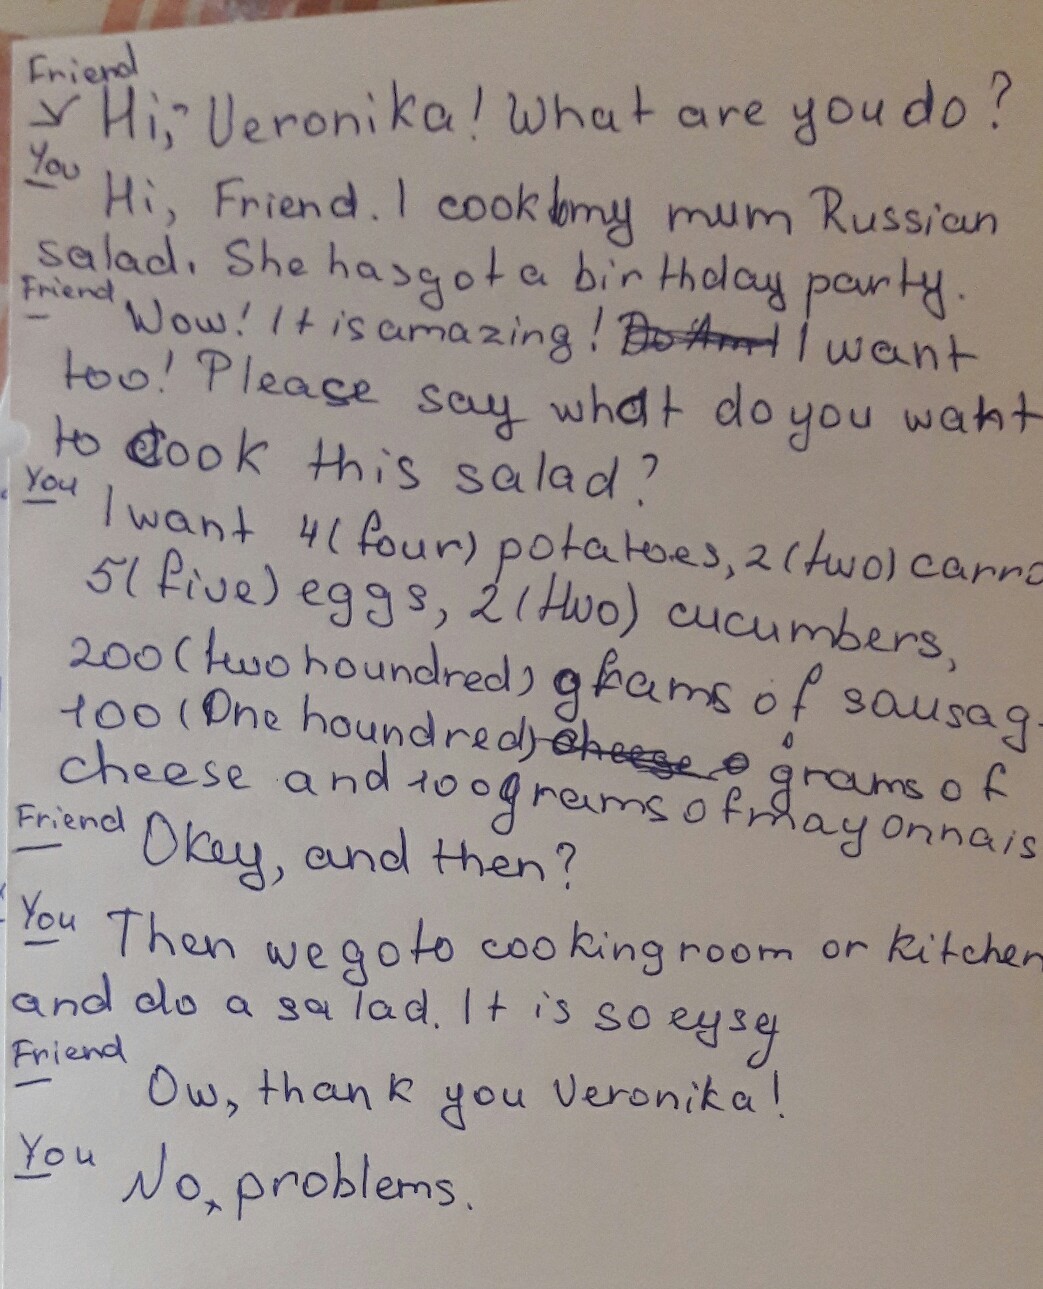 Friend
Hi, Veronika! What are you do?
You
Hi, Friend. I cook my mum Russian
salad. She has got a birthday party.
Friend
Wow! It is amazing! I want
too! Please say what do you want
to cook this salad?
You
I want 4 (four) potatoes, 2 (two) carro
5 (five) eggs, 2 (two) cucumbers,
200 (two houndred) grams of sausag
100 (One houndred) grams of
cheese and 100 grams of mayonnais
Friend
Okey, and then?
You
Then we go to cooking room or kitchen
and do a salad. It is so eysy
Friend
Ow, thank you Veronika!
You
No, problems.